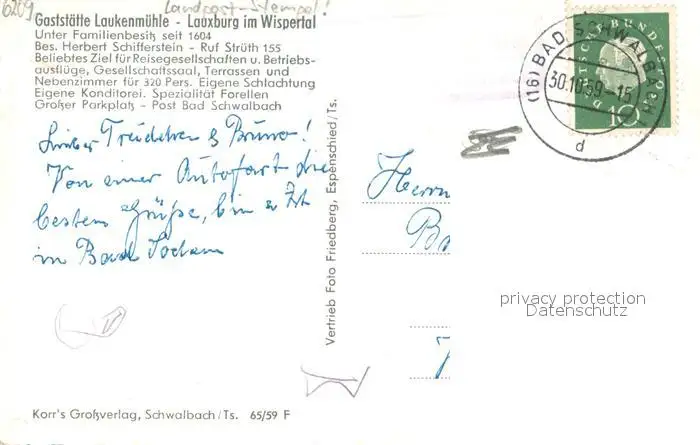 6209 Landpost-Stempel!
Gaststätte Laukenmühle - Lauxburg im Wispertal
Unter Familienbesitz seit 1604
Bes. Herbert Schifferstein - Ruf Strüth 155
Beliebtes Ziel für Reisegesellschaften u. Betriebs-
ausflüge, Gesellschaftssaal, Terrassen und
Nebenzimmer für 320 Pers. Eigene Schlachtung
Eigene Konditorei. Spezialität Forellen
Großer Parkplatz - Post Bad Schwalbach
(16) BAD SCHWALBACH
30.10.59-15
d
DEUTSCHE BUNDESPOST
10
Lieber Trudchen & Bruno!
Von einer Autofart die
besten Grüße, bin z Zt
in Bad Soden
Vertrieb Foto Friedberg, Espenschied/Ts.
Herrn
privacy protection
Datenschutz
Korr's Großverlag, Schwalbach/Ts. 65/59 F